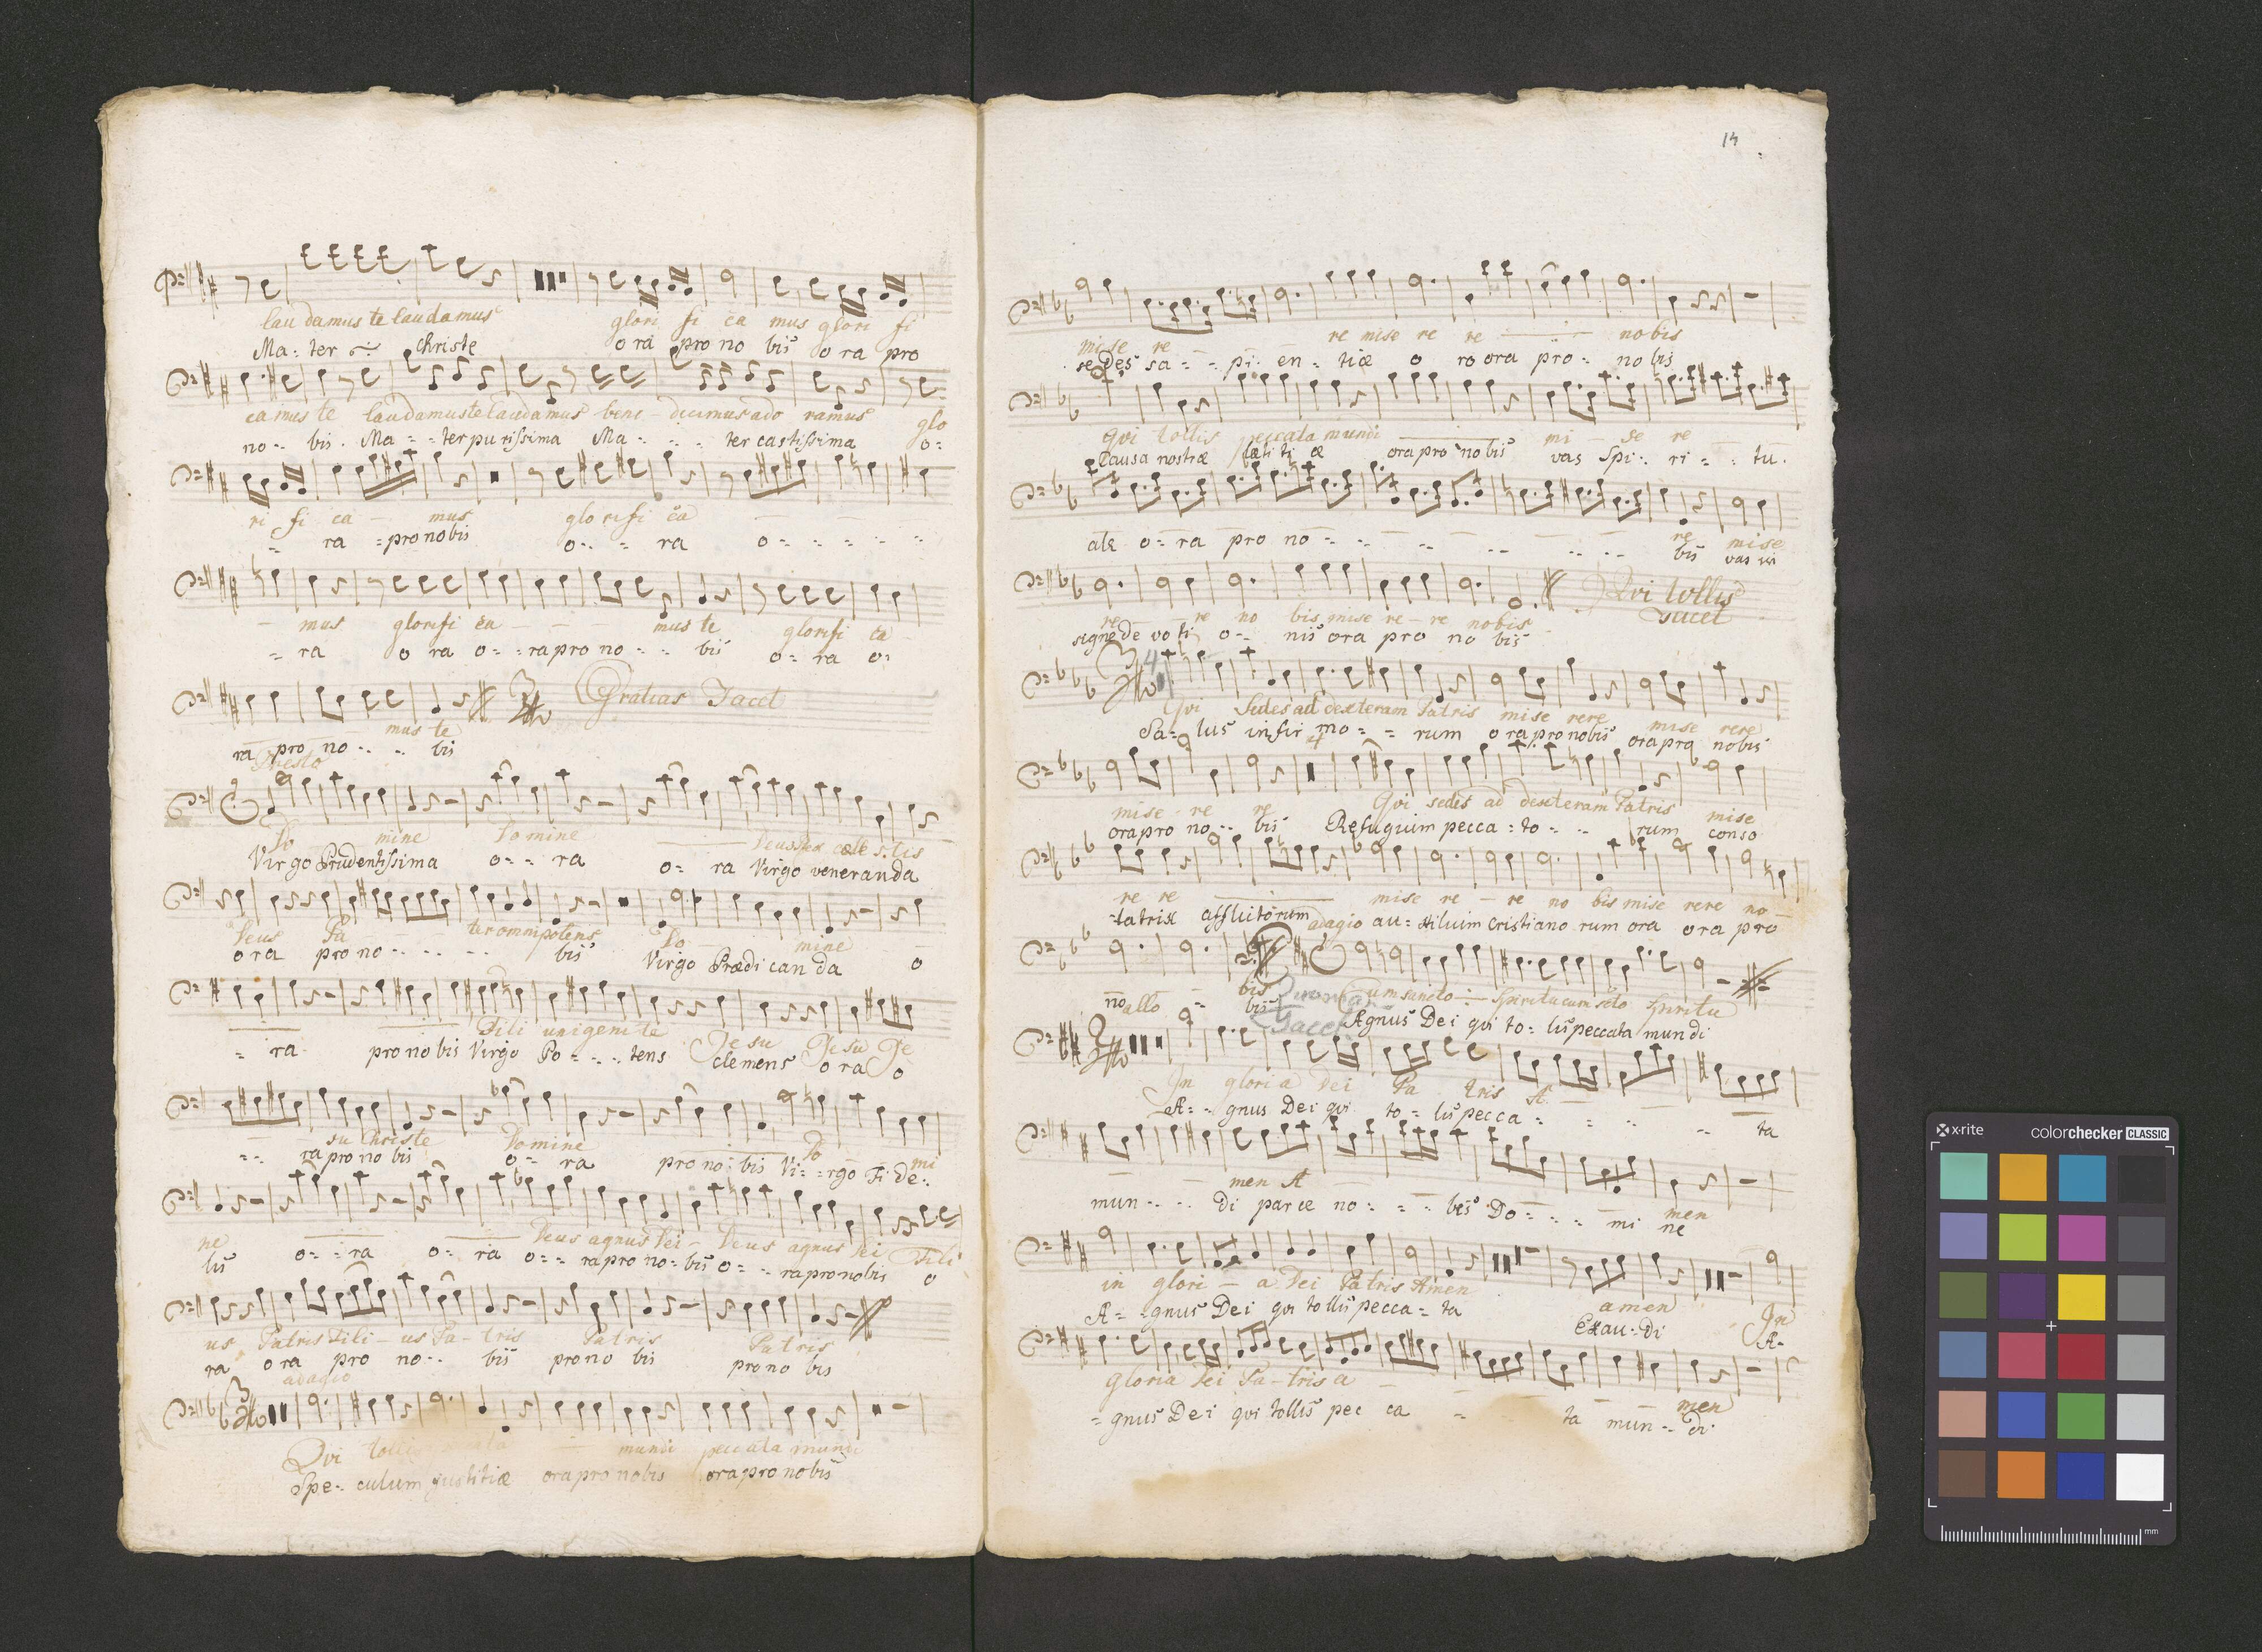 laudamus te laudamus glori fi ca mus glori fi
Ma: ter Christe o ra pro no bis o ra pro
ca mus te laudamus te laudamus bene ado ramus glo
no: bis. Ma: ter purissima Ma: ter castissima o:
ri fi ca mus glorifi ca
ra pro nobis o: ra o:
mus glorifi ca mus te glorifi ca
ra o ra o: ra pro no: bis o: ra o:
Gratias Tacet
mus te
ra pro no: bis
Presto
Do mine Domine Deus Rex cæle stis
Virgo Prudentissima o: ra o: ra Virgo veneranda
Deus Pa ter omnipotens Do mine
ora pro no: bis Virgo Prædicanda o
Fili unigenite Je su Je su Je
ra pro nobis Virgo Po: tens clemens o ra o
su Christe Domine Do mi
ra pro no bis o: ra pro no: bis Vi: rgo Fi de:
ne Deus agnus Dei Deus agnus Dei Fili
lis o: ra o: ra o: ra pro no: bis o: ra pro nobis o
us Patris Fili us Pa tris Patris Patris
ra ora pro no: bis pro no bis pro no bis
adagio
Qvi tollis mundi peccata mundi
Spe: culum justitiæ ora pro nobis ora pro nobis
14
mi se re re mise re re nobis
sedes sa: pi: en: tiæ o ro ora pro: no bis
Qvi tollis peccata mundi mi se re
Causa nostræ lætitiæ ora pro nobis vas Spi: ri: tu.
re mise
ale o: ra pro no: bis vas in
Qvi tollis
Tacet
re re no bis mise re re nobis
signe devoti o: nis ora pro no bis
4
Qvi Sedes ad dexteram Patris mise rere mise rere
Sa: lus infir mo: rum ora pro nobis ora pro nobis
4
mise re re Qvi sedes ad dexteram Patris mise
ora pro no: bis Refugium pecca: to: rum conso
re re mise re re no bis mise rere no
latrix afflictorum adagio au: xilium Cristiano rum ora ora pro
bis Quoniam Cum sancto Spiritu cum scto Spiritu
no allo bis Tacet Agnus Dei qvi to: lis peccata mundi
In gloria Dei Pa tris A
A: gnus Dei qvi to: lis pecca: ta
men A men
mun: di parce no: bis Do: mi ne
in glori a Dei Patris Amen amen In
A: gnus Dei qvi tollis pecca: ta Exau: di A:
gloria Dei Pa tris a men
gnus Dei qvi tollis pec ca ta mun: di
x-rite colorchecker CLASSIC
mm